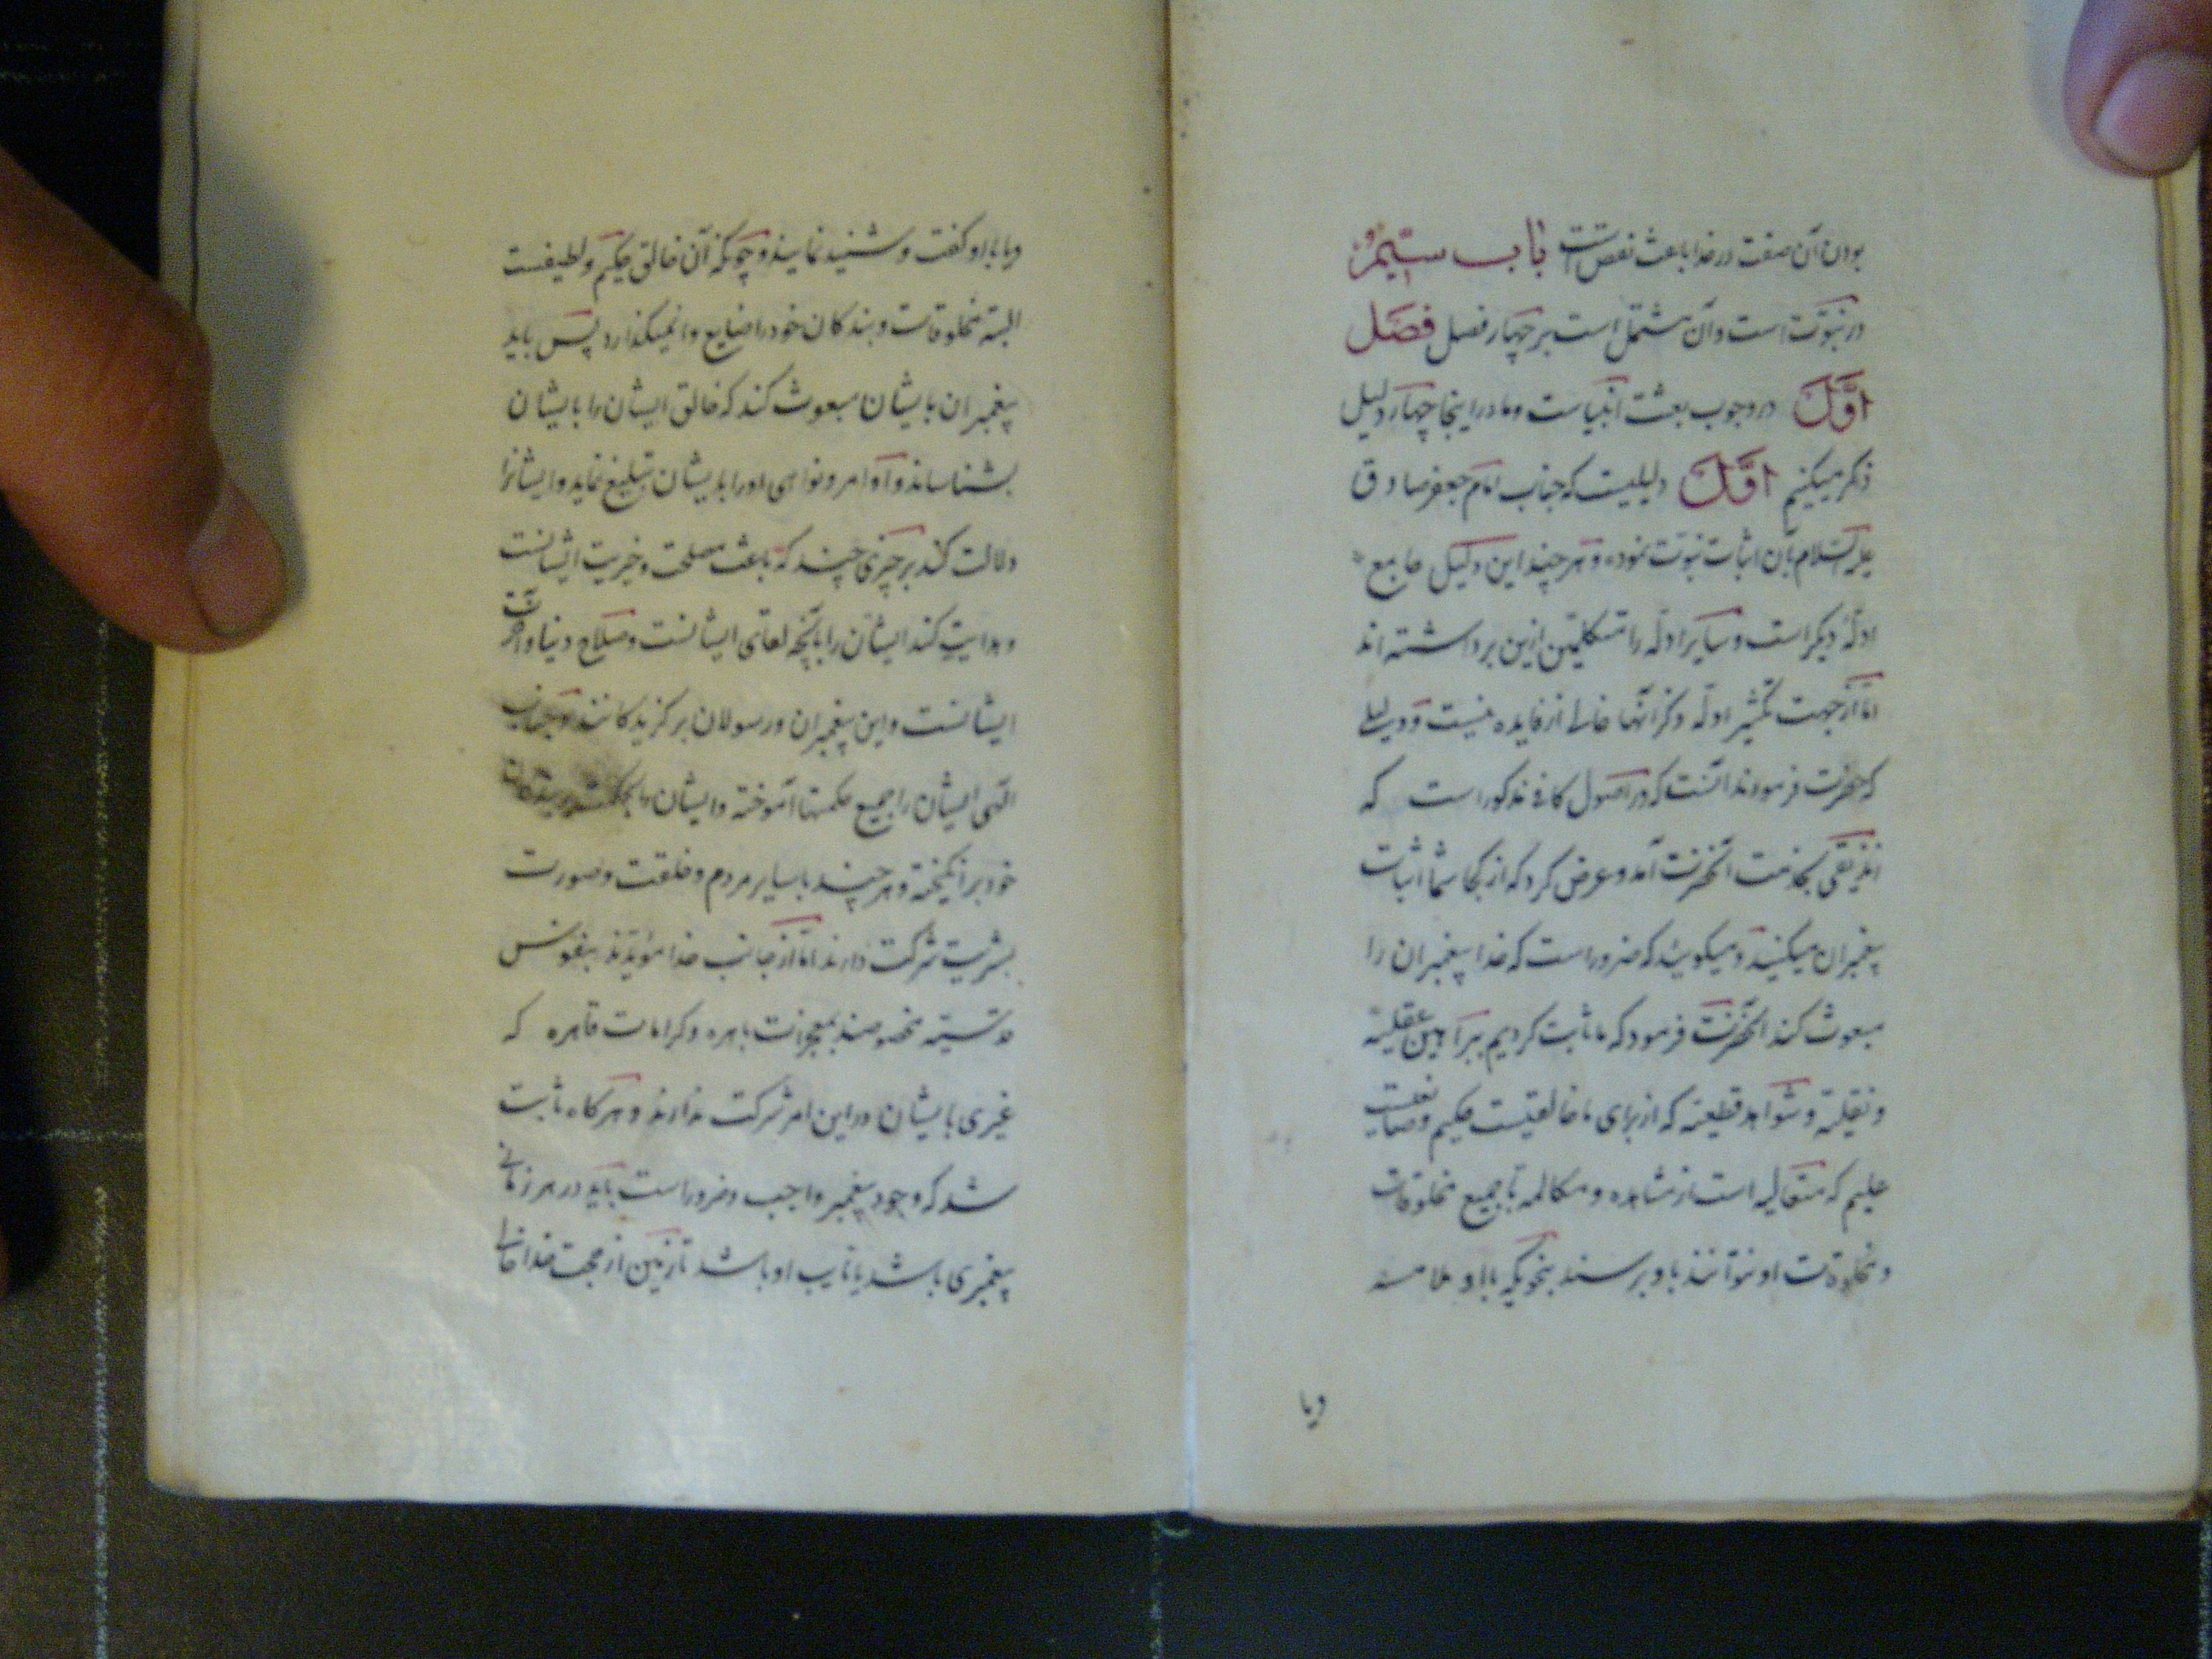 بودن آن صفت در خدا باعث نقص است باب سیم
در نبوّت است و آن مشتمل است بر چهار فصل فصل
اوّل در وجوب بعثت انبیاست و ما در اینجا چهار دلیل
ذکر میکنیم اوّل دلیلیست که جناب امام جعفر صادق
علیه السلام بآن اثبات نبوّت نموده و هر چند این دلیل جامع
ادلّهٔ دیگر است و سایر ادلّه را متکلمین ازین برداشته اند
امّا از جهت تکثیر ادلّه ذکر آنها خالی از فایده نیست و دلیلی
که حضرت فرمودند آنست که در اصول کافی مذکور است که
زندیقی بخدمت آنحضرت آمد و عرض کرد که از کجا شما اثبات
پیغمبران میکنید و میگویید که ضرور است که خدا پیغمبران را
مبعوث کند آنحضرت فرمود که ما ثابت کردیم ببراهین عقلیّه
و نقلیّه و شواهد قطعیّه که از برای ما خالقیست حکیم و صانعیست
علیم که متعالیه است از مشاهده و مکالمه با جمیع مخلوقات
و مخلوقات او نتوانند باو برسند بنحویکه با او ملامسه
ویا
ویا با او گفت و شنید نمایند و چونکه آن خالق حکیم و لطیفست
البته مخلوقات و بندگان خود را ضایع وا نمیگذارد پس باید
پیغمبران بایشان مبعوث کند که خالق ایشان را بایشان
بشناساند و اوامر و نواهی او را بدیشان تبلیغ نماید و ایشانرا
دلالت کند بر چیزی چند که باعث مصلحت و خیریت ایشانست
و هدایت کند ایشان را بآنچه بقای ایشانست و صلاح دنیا و آخرت
ایشانست و این پیغمبران و رسولان برگزیدگانند و جناب
الهی ایشان را جمیع حکمتها آموخته و ایشان را بحکمت
خود برانگیخته و هر چند با سایر مردم در خلقت و صورت
بشریت شرکت دارند امّا از جانب خدا مؤیدند بنفوس
قدسیّه مخصوصند بمعجزات باهره و کرامات قاهره که
غیری بایشان در این امر شرکت ندارند و هرگاه ثابت
شد که وجود پیغمبر واجب و ضرور است باید در هر زمانی
پیغمبری باشد یا نایب او باشد تا زمین از حجت خدا خالی